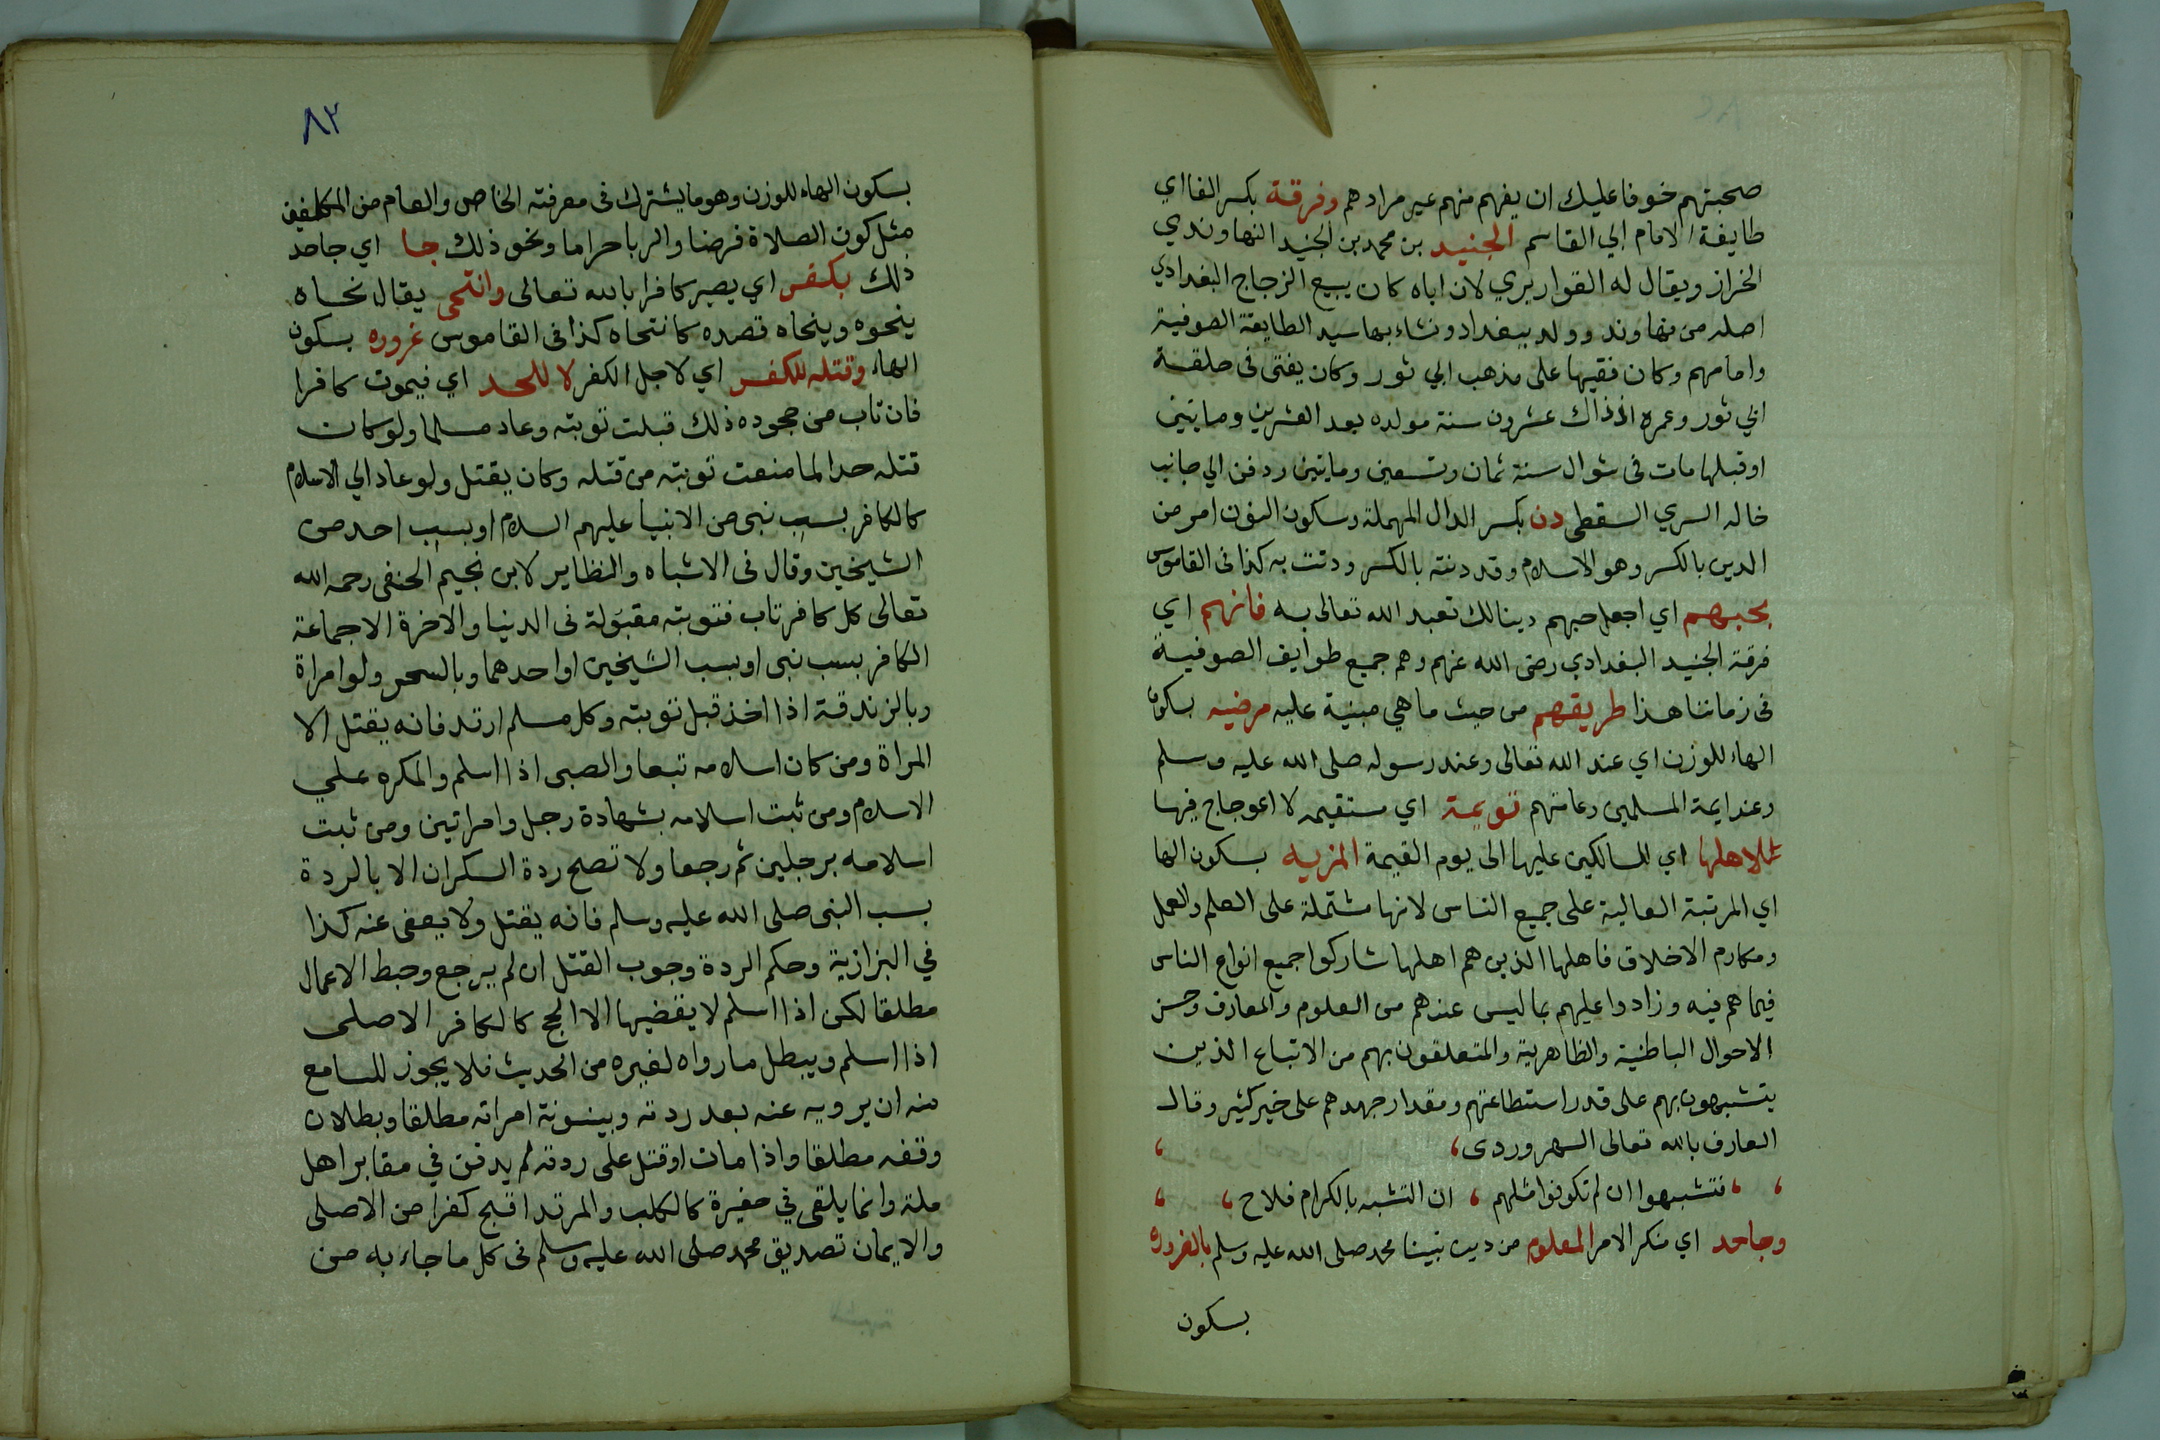 صحبتهم خوفا عليك ان يفهم منهم غير مرادهم وفرقة بكسر الفا اي
طايفة الامام ابي القاسم الجنيد بن محمد بن الجنيد النهاوندي
الخراز ويقال له القواريري لان اباه كان يبيع الزجاج البغدادي
اصله من نهاوند وولد ببغداد ونشاء بها سيد الطايفة الصوفية
وامامهم وكان فقيها على مذهب ابي ثور وكان يفتى فى حلقة
ابي ثور وعمره اذ ذاك عشرون سنة مولده بعد العشرين ومايتين
او قبلها مات فى شوال سنة ثمان وتسعين ومايتين ودفن الي جانب
خاله السري السقطى دن بكسر الدال المهملة وسكون النون امر من
الدين بالكسر وهو الاسلام وقد دنته بالكسر ودنت به كذا فى القاموس
بحبهم اي اجعل حبهم دينا لك تعبد الله تعالى به فانهم اي
فرقة الجنيد البغدادي رضى الله عنهم وهم جميع طوايف الصوفية
فى زماننا هذا طريقهم من حيث ما هي مبنية عليه مرضيه بسكون
الهاء للوزن اي عند الله تعالى وعند رسوله صلى الله عليه وسلم
وعند ايمة المسلمين وعامتهم قويمة اي مستقيمه لا اعوجاج فيها
لاهلها اي للسالكين عليها الى يوم القيمة المزيه بسكون الها
اي المرتبة العالية على جميع الناس لانها مشتملة على العلم والعمل
ومكارم الاخلاق فاهلها الذين هم اهلها شاركوا جميع انواع الناس
فيما هم فيه وزادوا عليهم بما ليس عندهم من العلوم والمعارف وحسن
الاحوال الباطنية والظاهرية والمتعلقون بهم من الاتباع الذين
يتشبهون بهم على قدر استطاعتهم ومقدار جهدهم على خير كثير وقال
العارف بالله تعالى السهروردى
فتشبهوا ان لم تكونوا مثلهم ، ان التشبه بالكرام فلاح
وجاحد اي منكر الامر المعلوم من دين نبينا محمد صلى الله عليه وسلم بالضروره
بسكون
٨٣
بسكون الهاء للوزن وهو ما يشترك فى معرفته الخاص والعام من المكلفين
مثل كون الصلاة فرضا والربا حراما ونحو ذلك جا اي جاحد
ذلك بكفر اي يصير كافرا بالله تعالى وانتحى يقال نحاه
ينحوه وينحاه قصده كانتحاه كذا فى القاموس غروره بسكون
الهاء وقتله للكفر اي لاجل الكفر لا للحد اي فيموت كافرا
فان تاب من جحوده ذلك قبلت توبته وعاد مسلما ولو كان
قتله حدا لما منعت توبته من قتله وكان يقتل ولو عاد الي الاسلام
كالكافر بسب نبى من الانبيا عليهم السلام او بسب احد من
الشيخين وقال فى الاشباه والنظاير لابن نجيم الحنفى رحمه الله
تعالى كل كافر تاب فتوبته مقبولة فى الدنيا والاخرة الا جماعة
الكافر بسب نبى او بسب الشيخين او احدهما وبالسحر ولو امراة
وبالزندقة اذا اخذ قبل توبته وكل مسلم ارتد فانه يقتل الا
المراة ومن كان اسلامه تبعا والصبى اذا اسلم والمكره علي
الاسلام ومن ثبت اسلامه بشهادة رجل وامراتين ومن ثبت
اسلامه برجلين ثم رجعا ولا تصح ردة السكران الا بالردة
بسب النبى صلى الله عليه وسلم فانه يقتل ولا يعفى عنه كذا
في البزازية وحكم الردة وجوب القتل ان لم يرجع وحبط الاعمال
مطلقا لكن اذا اسلم لا يقضيها الا الحج كالكافر الاصلى
اذا اسلم ويبطل ما رواه لغيره من الحديث فلا يجوز للسامع
منه ان يرويه عنه بعد ردته وبينونة امراته مطلقا وبطلان
وقفه مطلقا واذا مات او قتل على ردته لم يدفن في مقابر اهل
ملة وانما يلقى في حفيرة كالكلب والمرتد اقبح كفرا من الاصلى
والايمان تصديق محمد صلى الله عليه وسلم فى كل ما جاء به من